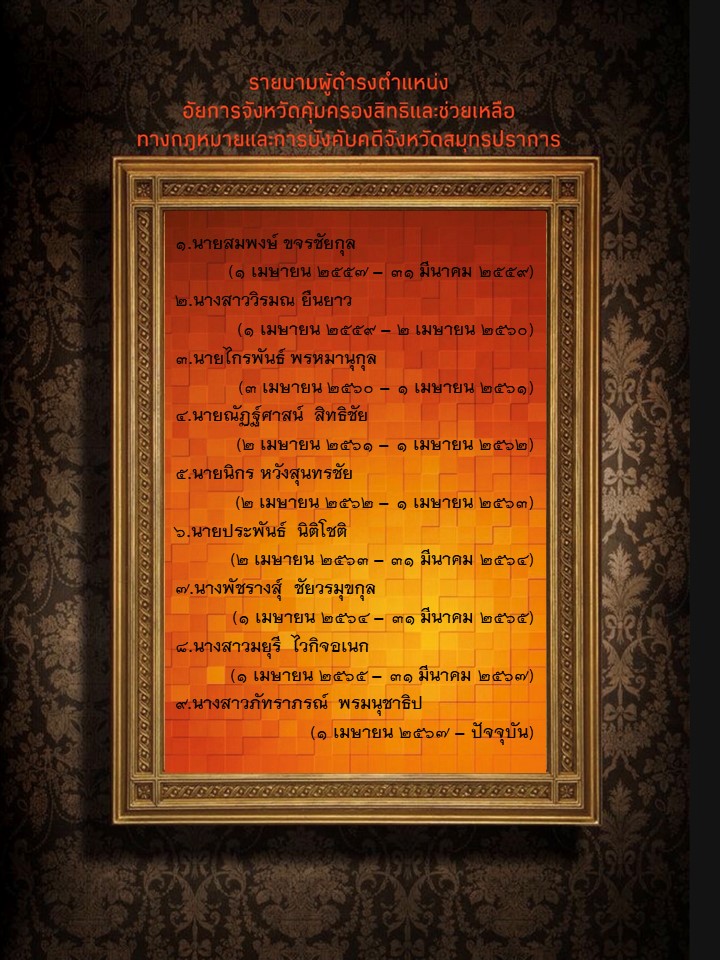 รายนามผู้ดำรงตำแหน่ง
อัยการจังหวัดคุ้มครองสิทธิและช่วยเหลือ
ทางกฎหมายและการบังคับคดีจังหวัดสมุทรปราการ
๑.นายสมพงษ์ ขจรชัยกุล
(๑ เมษายน ๒๕๕๗ – ๓๑ มีนาคม ๒๕๕๙)
๒.นางสาววิรมณ ยืนยาว
(๑ เมษายน ๒๕๕๙ – ๒ เมษายน ๒๕๖๐)
๓.นายไกรพันธ์ พรหมานุกุล
(๓ เมษายน ๒๕๖๐ – ๑ เมษายน ๒๕๖๑)
๔.นายณัฏฐ์ศาสน์ สิทธิชัย
(๒ เมษายน ๒๕๖๑ – ๑ เมษายน ๒๕๖๒)
๕.นายนิกร หวังสุนทรชัย
(๒ เมษายน ๒๕๖๒ – ๑ เมษายน ๒๕๖๓)
๖.นายประพันธ์ นิติโชติ
(๒ เมษายน ๒๕๖๓ – ๓๑ มีนาคม ๒๕๖๔)
๗.นางพัชรางสุ์ ชัยวรมุขกุล
(๑ เมษายน ๒๕๖๔ – ๓๑ มีนาคม ๒๕๖๕)
๘.นางสาวมยุรี ไวกิจอเนก
(๑ เมษายน ๒๕๖๕ – ๓๑ มีนาคม ๒๕๖๗)
๙.นางสาวภัทราภรณ์ พรมนุชาธิป
(๑ เมษายน ๒๕๖๗ – ปัจจุบัน)